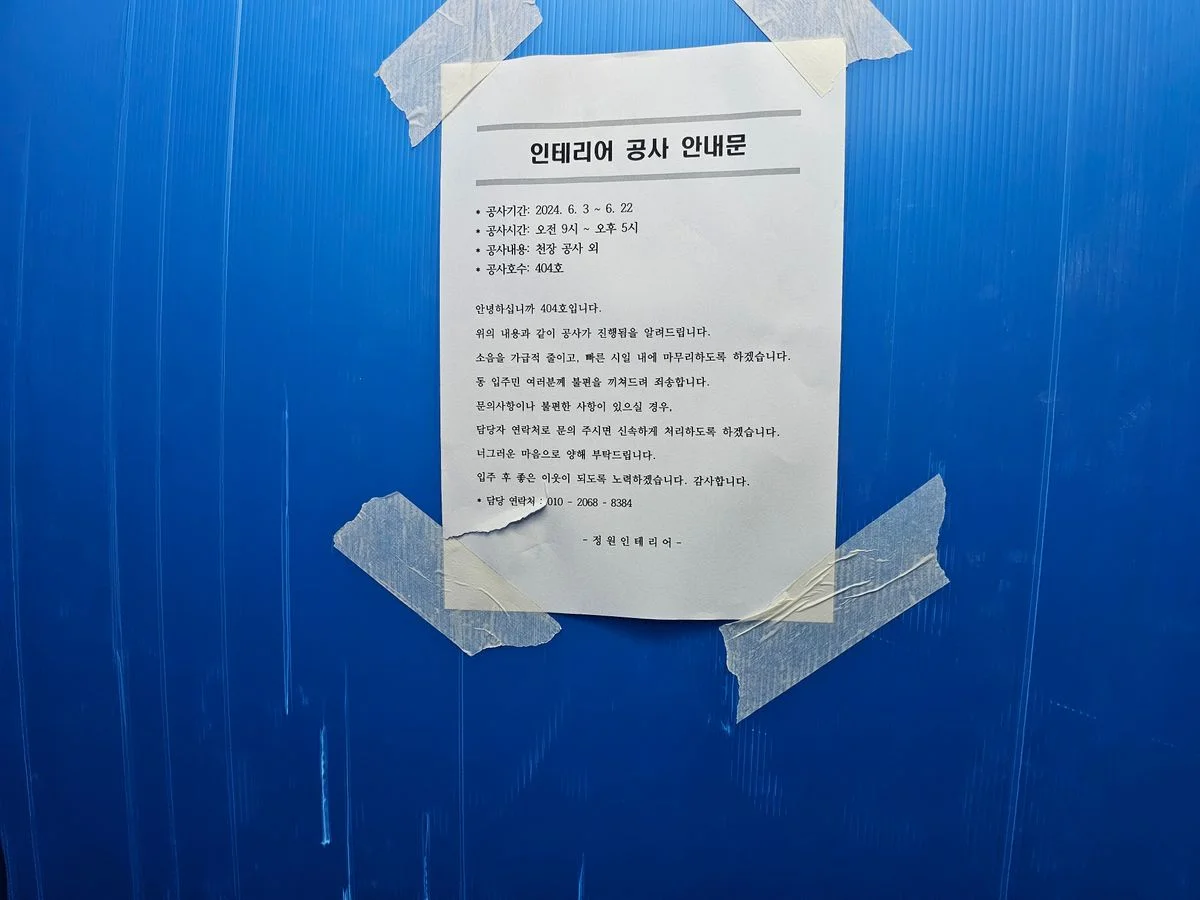 인테리어 공사 안내문
* 공사기간: 2024. 6. 3 ~ 6. 22
* 공사시간: 오전 9시 ~ 오후 5시
* 공사내용: 천장 공사 외
* 공사호수: 404호
안녕하십니까 404호입니다.
위의 내용과 같이 공사가 진행됨을 알려드립니다.
소음을 가급적 줄이고, 빠른 시일 내에 마무리하도록 하겠습니다.
동 입주민 여러분께 불편을 끼쳐드려 죄송합니다.
문의사항이나 불편한 사항이 있으실 경우,
담당자 연락처로 문의 주시면 신속하게 처리하도록 하겠습니다.
너그러운 마음으로 양해 부탁드립니다.
입주 후 좋은 이웃이 되도록 노력하겠습니다. 감사합니다.
* 담당 연락처 : 010 - 2068 - 8384
- 정 원 인 테 리 어 -